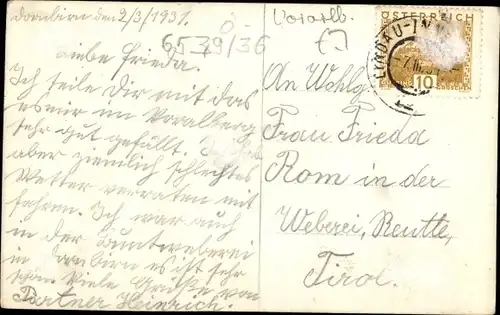 Dornbirn den 2/3/1931.
Liebe Frieda.
Ich teile Dir mit das
es mir im Voralberg
sehr gut gefällt.
aber ziemlich schlechtes
Wetter
fahren. Ich war auch
in der Buntweberei
in Dornbirn es ist sehr
schön Viele Grüße von
Partner Heinrich.
6539/36
Vorarlb.
ÖSTERREICH
10
GROSCHEN
LINDAU-
An Wohlg
Frau Frieda
Rom in der
Weberei, Reutte,
Tirol.